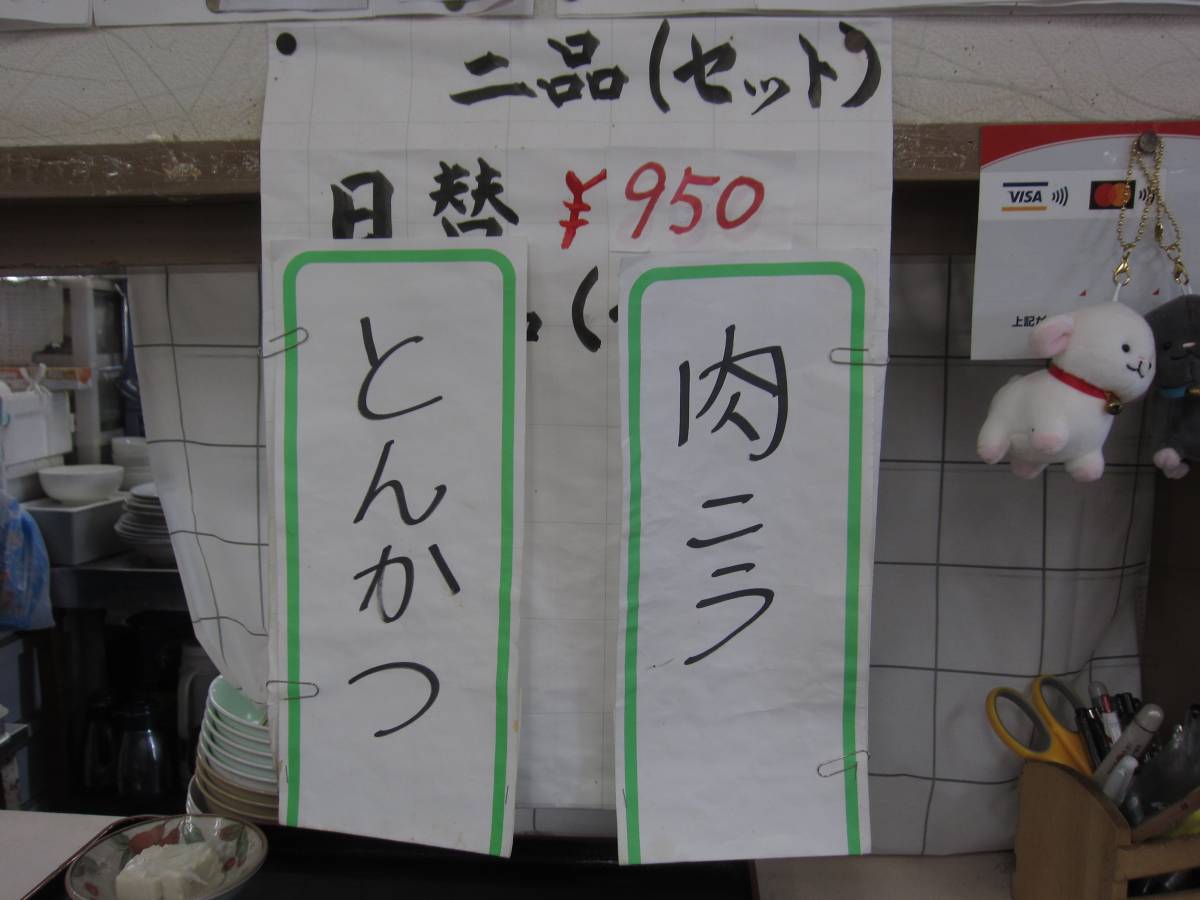 二品(セット)
日替 ¥950
とんかつ
肉ニラ
VISA
上記が